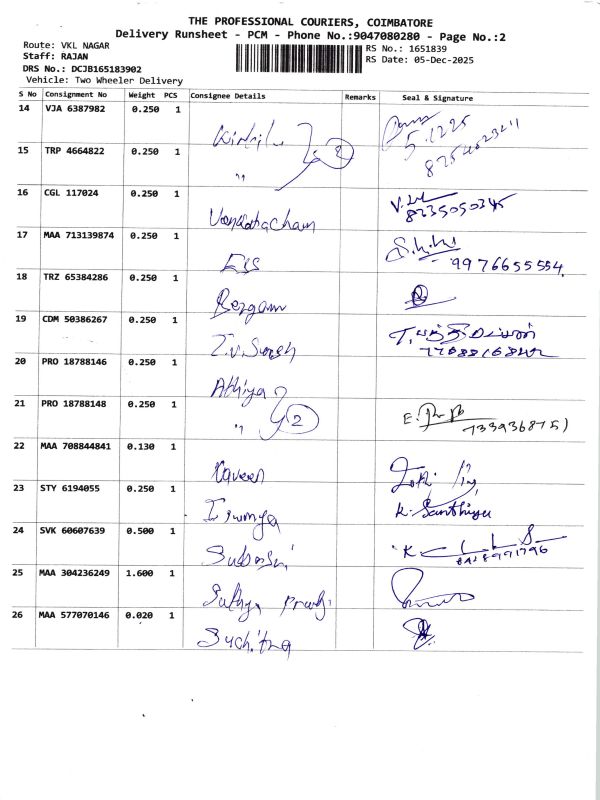 THE PROFESSIONAL COURIERS, COIMBATORE
Delivery Runsheet - PCM - Phone No.:9047080280 - Page No.:2
Route: VKL NAGAR
Staff: RAJAN
DRS No.: DCJB165183902
Vehicle: Two Wheeler Delivery
RS No.: 1651839
RS Date: 05-Dec-2025
S No Consignment No Weight PCS Consignee Details Remarks Seal & Signature
14 VJA 6387982 0.250 1
5.1225
15 TRP 4664822 0.250 1
" 2
16 CGL 117024 0.250 1
Venkatacham 8235050345
17 MAA 713139874 0.250 1
9976655554
18 TRZ 65384286 0.250 1
19 CDM 50386267 0.250 1
20 PRO 18788146 0.250 1
Athiya
21 PRO 18788148 0.250 1
" 2
22 MAA 708844841 0.130 1
Naveen
23 STY 6194055 0.250 1
K. Santhiya
24 SVK 60607639 0.500 1
25 MAA 304236249 1.600 1
Sathya
26 MAA 577070146 0.020 1
Suchitra